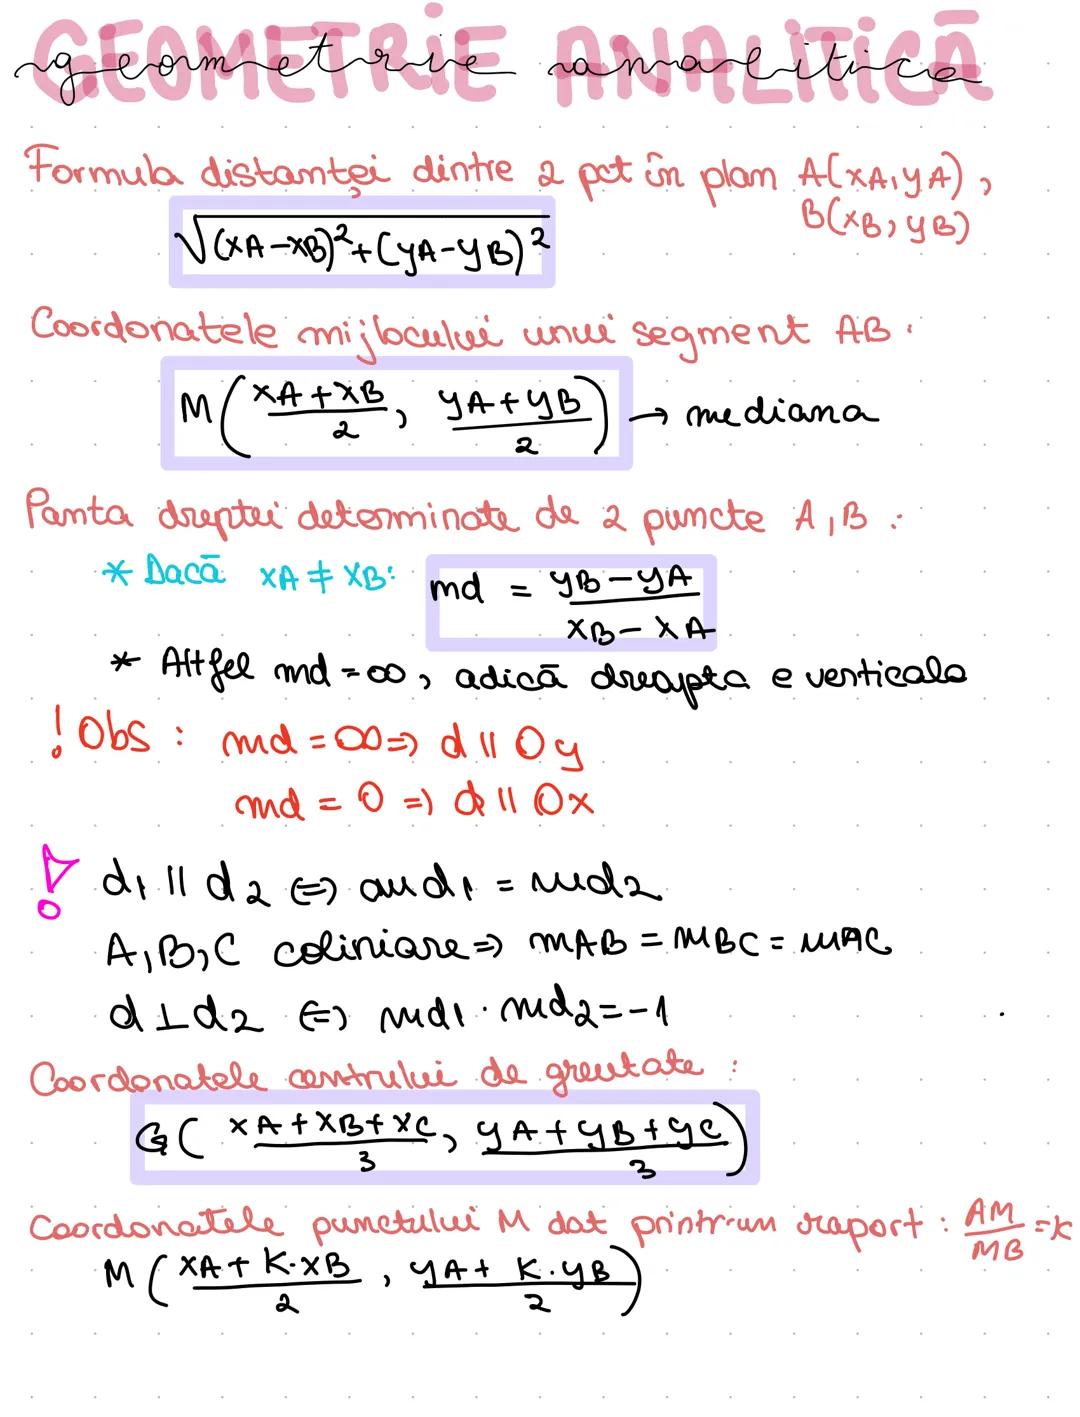 GEOMETRIE ANALITICĂ
geometrie analitică
Formula distanței dintre 2 pct în plan A(xA, yA),
B(xB, yB)
√(xA-xB)²+(yA-yB)²
Coordonatele mijlocului unui segment AB.
M(xA+xB/2, yA+yB/2) → mediana
Panta dreptei determinate de 2 puncte A, B:
* Dacă xA ≠ xB: md = yB-yA/xB-xA
* Altfel md = ∞, adică dreapta e verticala
! Obs: md = ∞ => d || Oy
md = 0 => d || Ox
! d1 || d2 <=> md1 = md2
A, B, C coliniare => mAB = mBC = mAC
d ⊥ d2 <=> md1 · md2 = -1
Coordonatele centrului de greutate:
G(xA+xB+xC/3, yA+yB+yC/3)
Coordonatele punctului M dat printr-un raport: AM/MB = k
M(xA+K·xB/2, yA+K·yB/2)